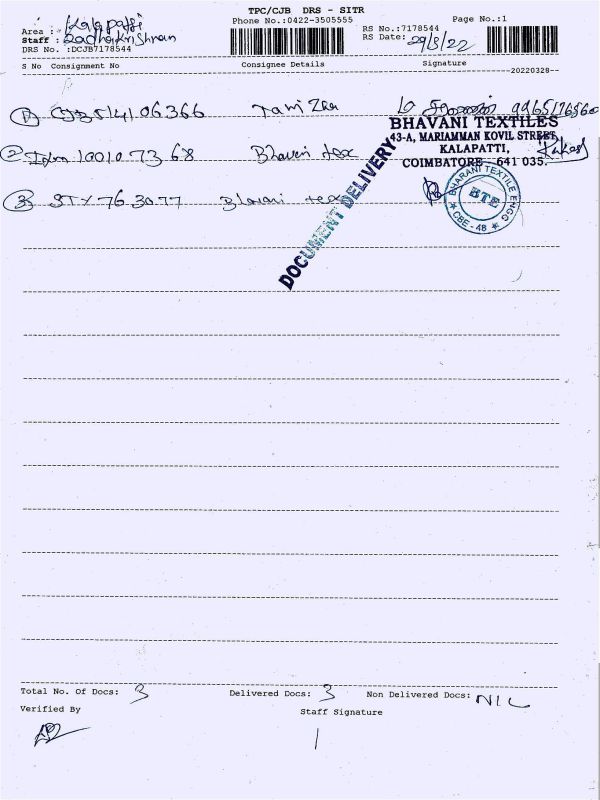 TPC/CJB DRS - SITR
Phone No.:0422-3505555 Page No.:1
Area : Kalapatti RS No.:7178544
Staff : Radhakrishnan RS Date: 29/3/22
DRS No. :DCJB7178544
S No Consignment No Consignee Details Signature
20220328
① CJB514106366 9965176560
BHAVANI TEXTILES
43-A, MARIAMMAN KOVIL STREET,
KALAPATTI,
COIMBATORE - 641 035.
② 100107368 Bhavani tex Rakesh
DOCUMENT DELIVERY
③ 763077 Bhavani tex
BHARANI TEXTILE ENGG
BTE
★ CBE - 48 ★
Total No. Of Docs: 3 Delivered Docs: 3 Non Delivered Docs: NIL
Verified By Staff Signature